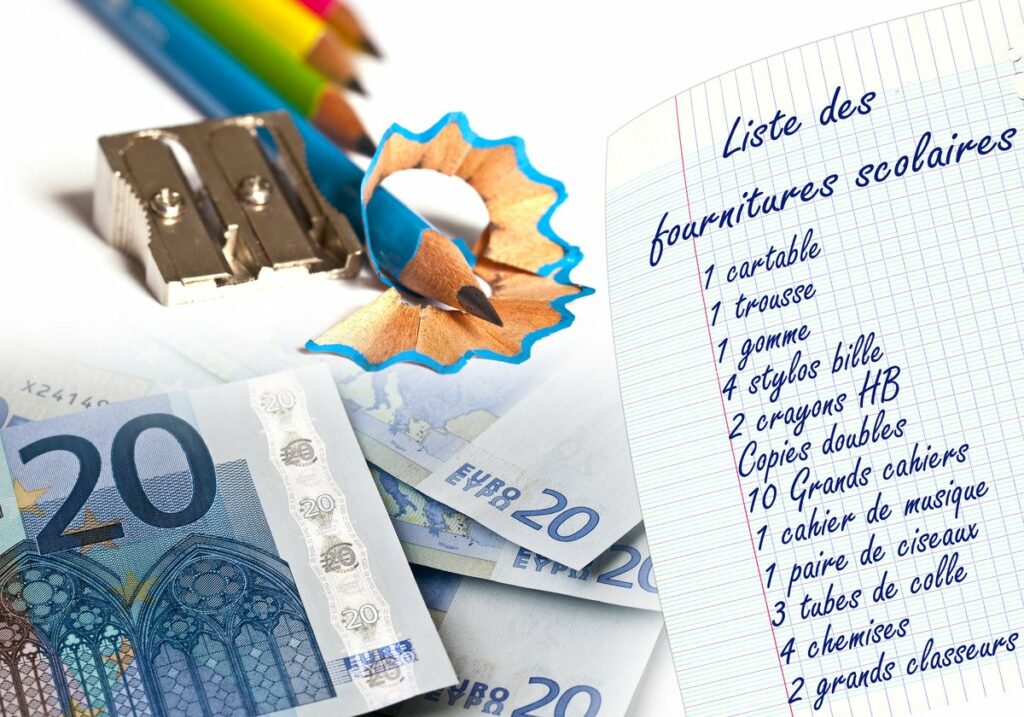 Liste des
fournitures scolaires
1 cartable
1 trousse
1 gomme
4 stylos bille
2 crayons HB
Copies doubles
10 Grands cahiers
1 cahier de musique
1 paire de ciseaux
3 tubes de colle
4 chemises
2 grands classeurs
X2414
20
20
20
20
20
20
EURO
EURO
ΕΥΡΩ
20
20
EURO
ΕΥΡΩ
20